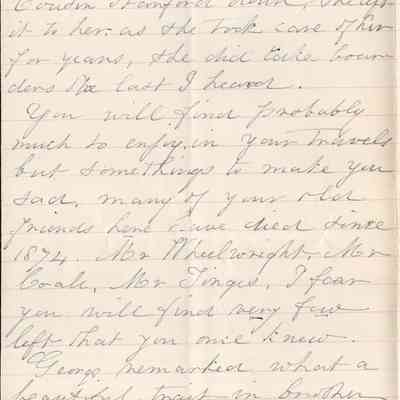 Cousin Stanford died, she left
it to her. as she took care of him
for years, she did take boar
ders the last I heard.
You will find probably
much to enjoy, in your travels
but somethings to make you
sad, many of your old
friends here have died since
1874. Mr Wheelwright, Mr
Coale, Mr Tinges, I fear
you will find very few
left that you once knew.
George remarked what a
beautiful trait in brother